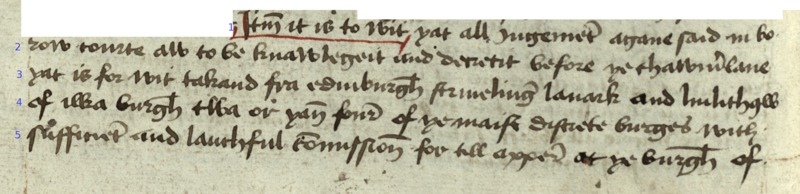 Itm it is to wit yat all jugemet agane said in bo
row courte aw to be knawlegeit and decretit before ye chawmlane
yat is for wit takand fra edinburgh striueling lanark and linlithqw
of ilka burgh twa or yan four of ye maist discrete burges with
sufficiet and lauthful commission for till apper at ye burgh of